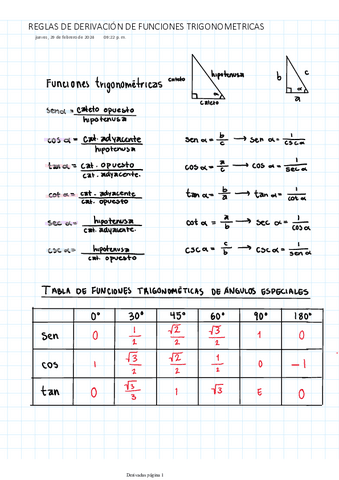 REGLAS DE DERIVACIÓN DE FUNCIONES TRIGONOMETRICAS
jueves, 29 de febrero de 2024 09:23 p. m.
Funciones trigonométricas
cateto hipotenusa α cateto
b c α a
sen α = cateto opuesto / hipotenusa
cos α = cat. adyacente / hipotenusa
sen α = b/c → sen α = 1/csc α
tan α = cat. opuesto / cat. adyacente.
cos α = a/c → cos α = 1/sec α
cot α = cat. adyacente / cat. opuesto
tan α = b/a → tan α = 1/cot α
sec α = hipotenusa / cat. adyacente
cot α = a/b → sec α = 1/cos α
csc α = hipotenusa / cat. opuesto
csc α = c/b → csc α = 1/sen α
TABLA DE FUNCIONES TRIGONOMÉTRICAS DE ÁNGULOS ESPECIALES
0° 30° 45° 60° 90° 180°
sen 0 1/2 √2/2 √3/2 1 0
cos 1 √3/2 √2/2 1/2 0 -1
tan 0 √3/3 1 √3 E 0
Derivadas página 1